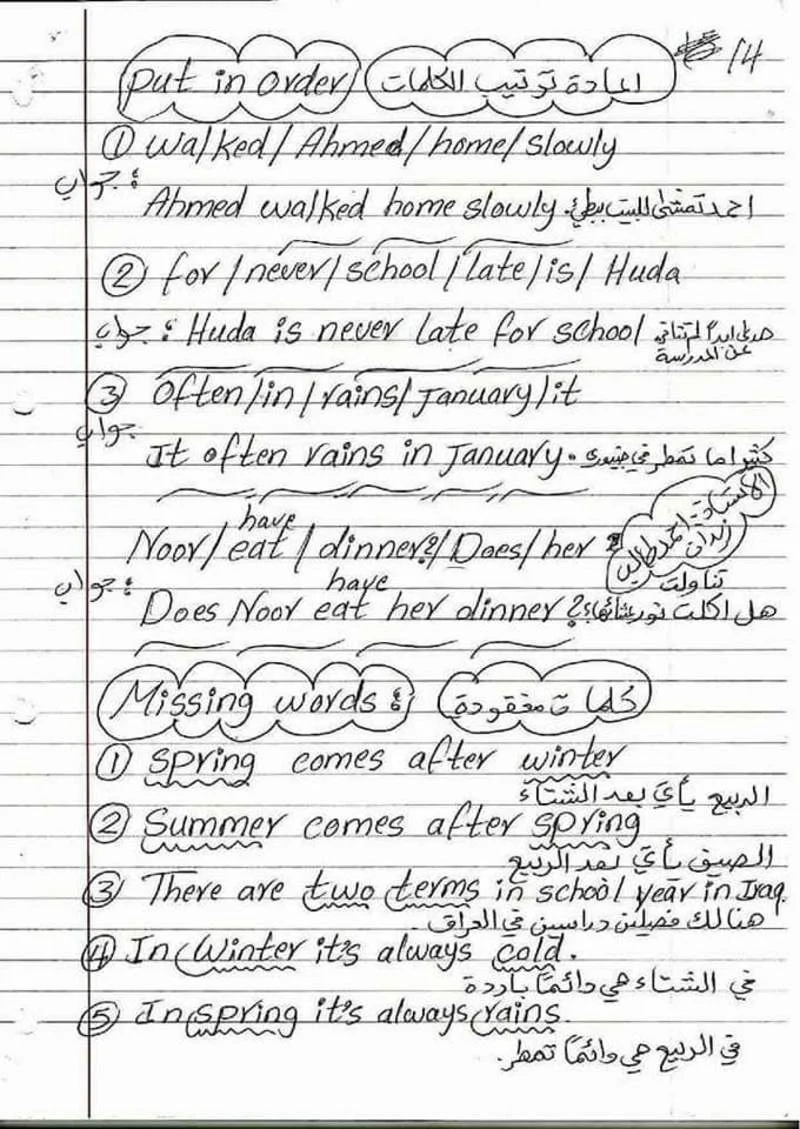 14
Put in order اعادة ترتيب الكلمات
① walked / Ahmed / home / slowly
جواب :
Ahmed walked home slowly. احمد تمشى للبيت ببطئ
② for / never / school / late / is / Huda
جواب : Huda is never late for school هدى ابداً لم تتأخر
عن المدرسة
③ Often / in / rains / January / it
جواب
It often rains in January. كثيرا ما تمطر في
الاستاذ
have
Noor / eat / dinner? / Does / her ?
جواب : have تناولت
Does Noor eat her dinner? هل اكلت نور عشائها؟
Missing words : كلمات مفقودة
① Spring comes after winter
الربيع يأتي بعد الشتاء
② Summer comes after spring
الصيف يأتي بعد الربيع
③ There are two terms in school year in Iraq.
هنالك فصلين دراسين في العراق.
④ In Winter it's always cold.
في الشتاء هي دائماً باردة
⑤ In spring it's always rains.
في الربيع هي دائماً تمطر.